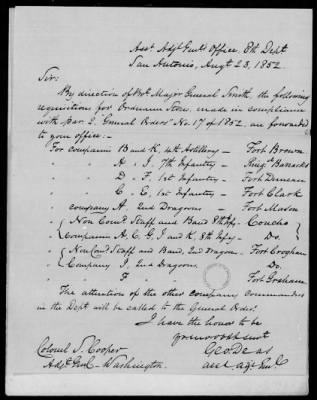 Asst Adjt Genl's Office, 8th Dept
San Antonio, Augt 23, 1852
Sir:
By direction of Bvt Major General Smith, the following
requisitions for Ordnance Stores, made in compliance
with par. 2, "General Orders" No. 17 of 1852, are forwarded
to your office:—
For companies B and K, 4th Artillery — Fort Brown
" A. I, 7th Infantry — Ringd Barracks
" D. F, 1st Infantry — Fort Duncan
" C. E, 1st Infantry — Fort Clark
company A. 2nd Dragoons — Fort Mason
" Non Comd Staff and Band 8th Infy — Concho
Companies A, C, G, I and K, 8th Infy — Do
" Non Comd Staff and Band, 2nd Dragoons — Fort Croghan
Company I, 2nd Dragoons Do.
" F " Fort Graham
The attention of the other company commanders
in the Dept will be called to the General Order.
I have the honor to be
Colonel S. Cooper
Adjt Genl — Washington.
Geo. Deas
asst adjt Genl